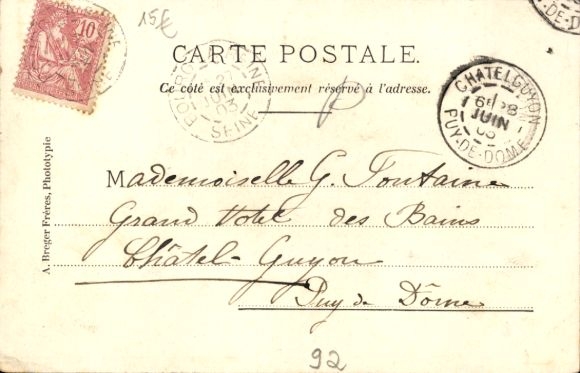 15€
10
CARTE POSTALE.
Ce côté est exclusivement réservé à l'adresse.
SEINE
27
JUIN
03
CHATELGUYON
6E 28
JUIN
03
PUY-DE-DOME
Mademoiselle G. Fontaine
Grand Hotel des Bains
Châtel-Guyon
Puy de Dôme
A. Breger Frères, Phototypie
92